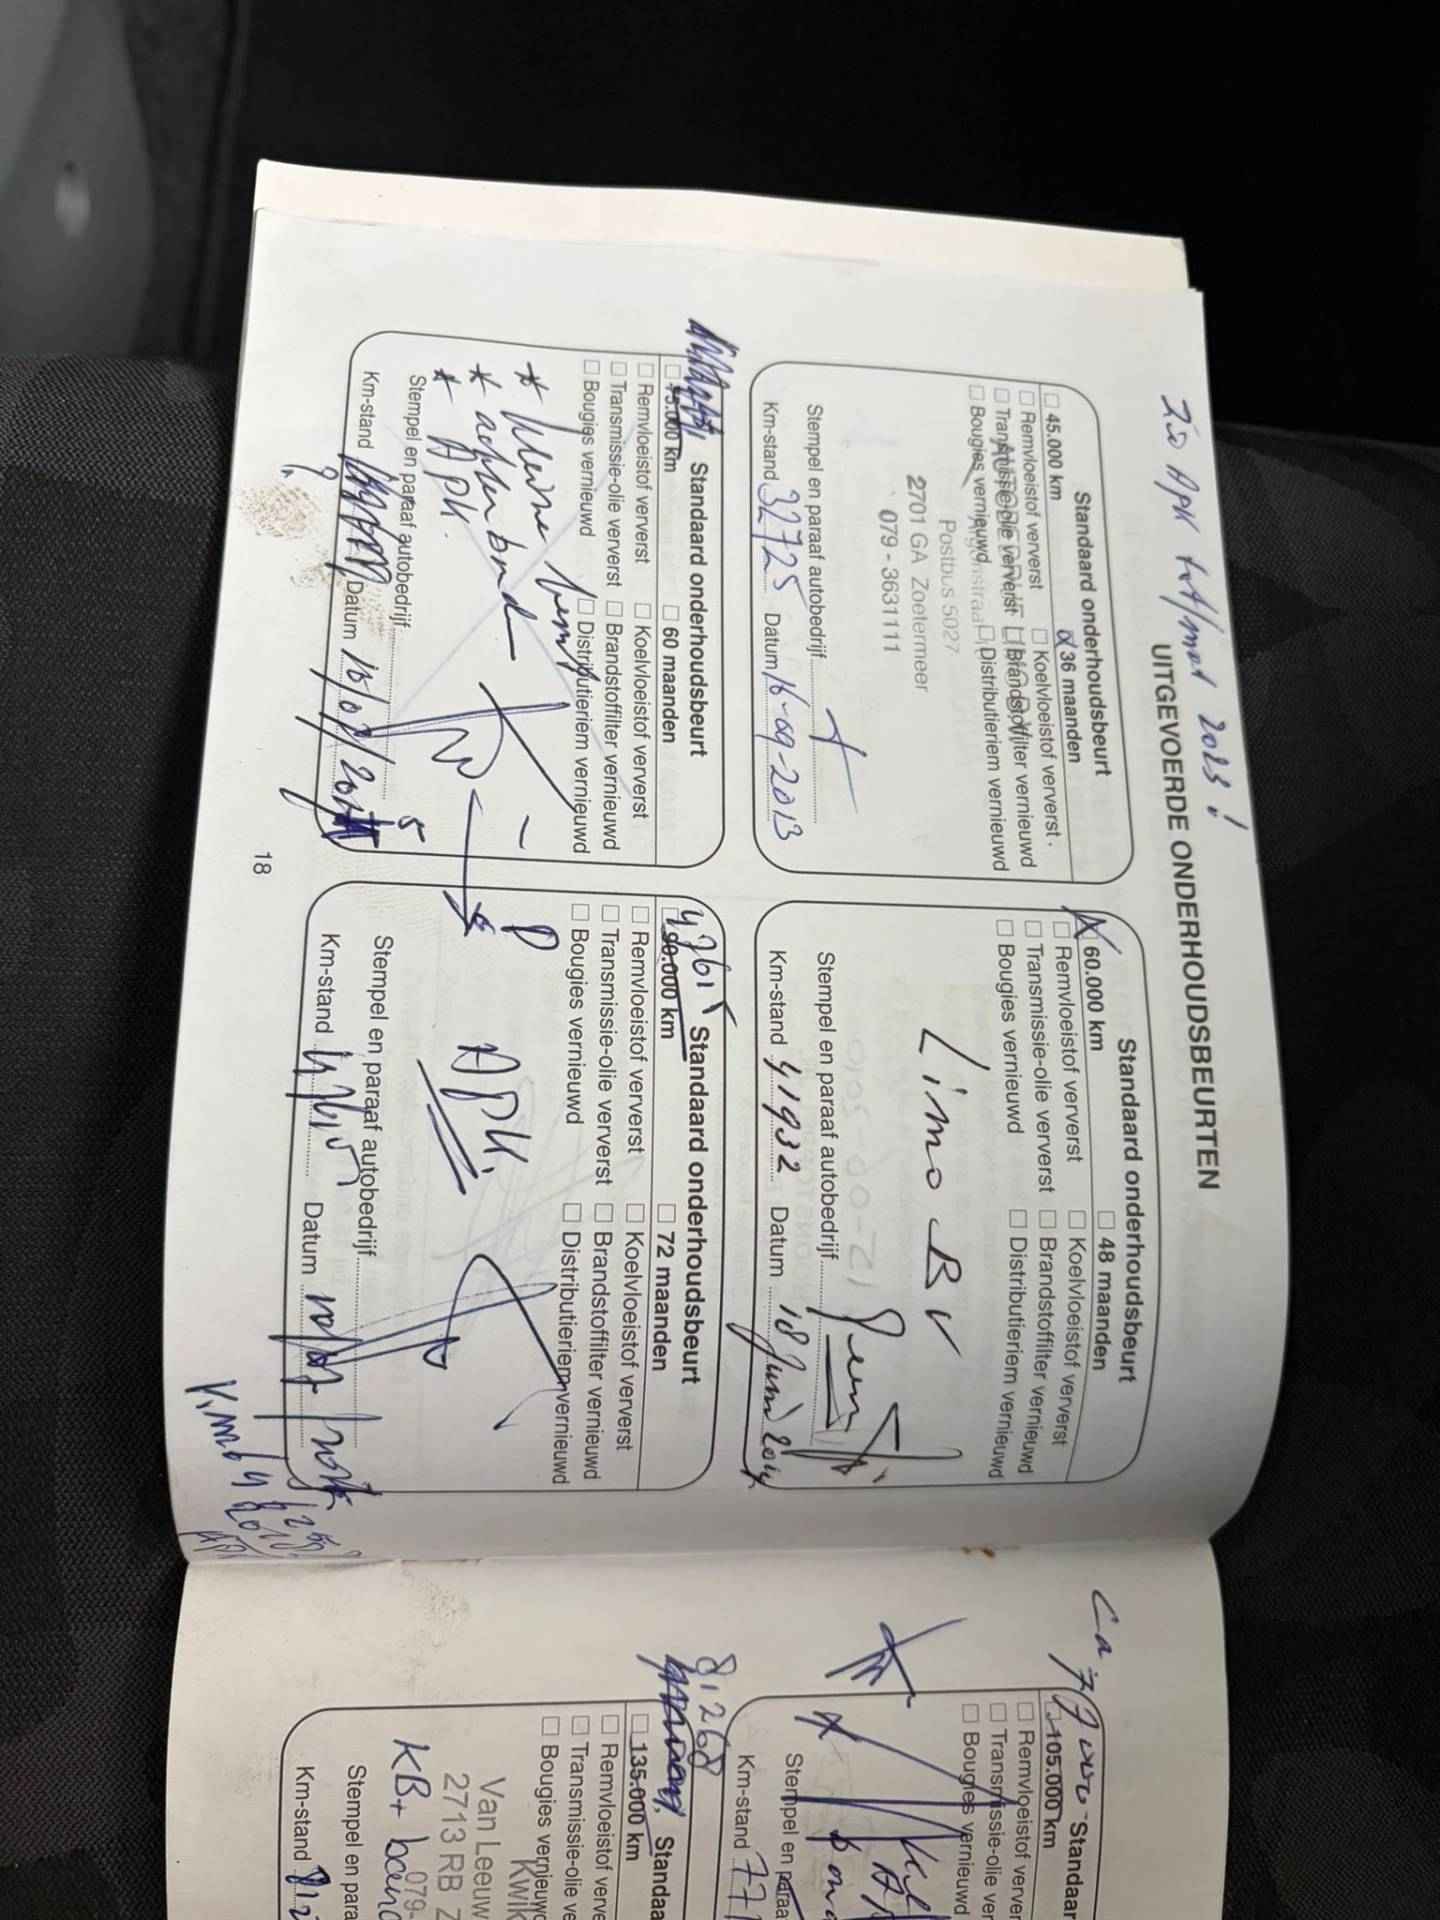 APK tot/met 2023!
UITGEVOERDE ONDERHOUDSBEURTEN
Standaard onderhoudsbeurt
45.000 km
36 maanden
Remvloeistof ververst
Koelvloeistof ververst
Transmissie-olie ververst
Brandstoffilter vernieuwd
Bougies vernieuwd
Distributieriem vernieuwd
Postbus 5027
2701 GA Zoetermeer
079 - 3631111
Stempel en paraaf autobedrijf
Km-stand 32725 Datum 16-09-2013
Standaard onderhoudsbeurt
60.000 km
48 maanden
Remvloeistof ververst
Koelvloeistof ververst
Transmissie-olie ververst
Brandstoffilter vernieuwd
Bougies vernieuwd
Distributieriem vernieuwd
Limo BV
Stempel en paraaf autobedrijf
Km-stand 41932 Datum 18 Juni 2014
Standaard onderhoudsbeurt
75.000 km
60 maanden
Remvloeistof ververst
Koelvloeistof ververst
Transmissie-olie ververst
Brandstoffilter vernieuwd
Bougies vernieuwd
Distributieriem vernieuwd
* kleine beurt
* achterband
* APK.
Stempel en paraaf autobedrijf
Km-stand
Datum
Standaard onderhoudsbeurt
90.000 km
72 maanden
Remvloeistof ververst
Koelvloeistof ververst
Transmissie-olie ververst
Brandstoffilter vernieuwd
Bougies vernieuwd
Distributieriem vernieuwd
APK.
Stempel en paraaf autobedrijf
Km-stand
Datum
18
Ca
Standaar
105.000 km
Remvloeistof verver
Transmissie-olie ver
Bougies vernieuwd
Stempel en paraa
Km-stand 771
81268
Standaa
135.000 km
Remvloeistof verve
Transmissie-olie ve
Bougies vernieuwd
Kwik
Van Leeuw
2713 RB Z
079-
KB+
Stempel en para
Km-stand 812